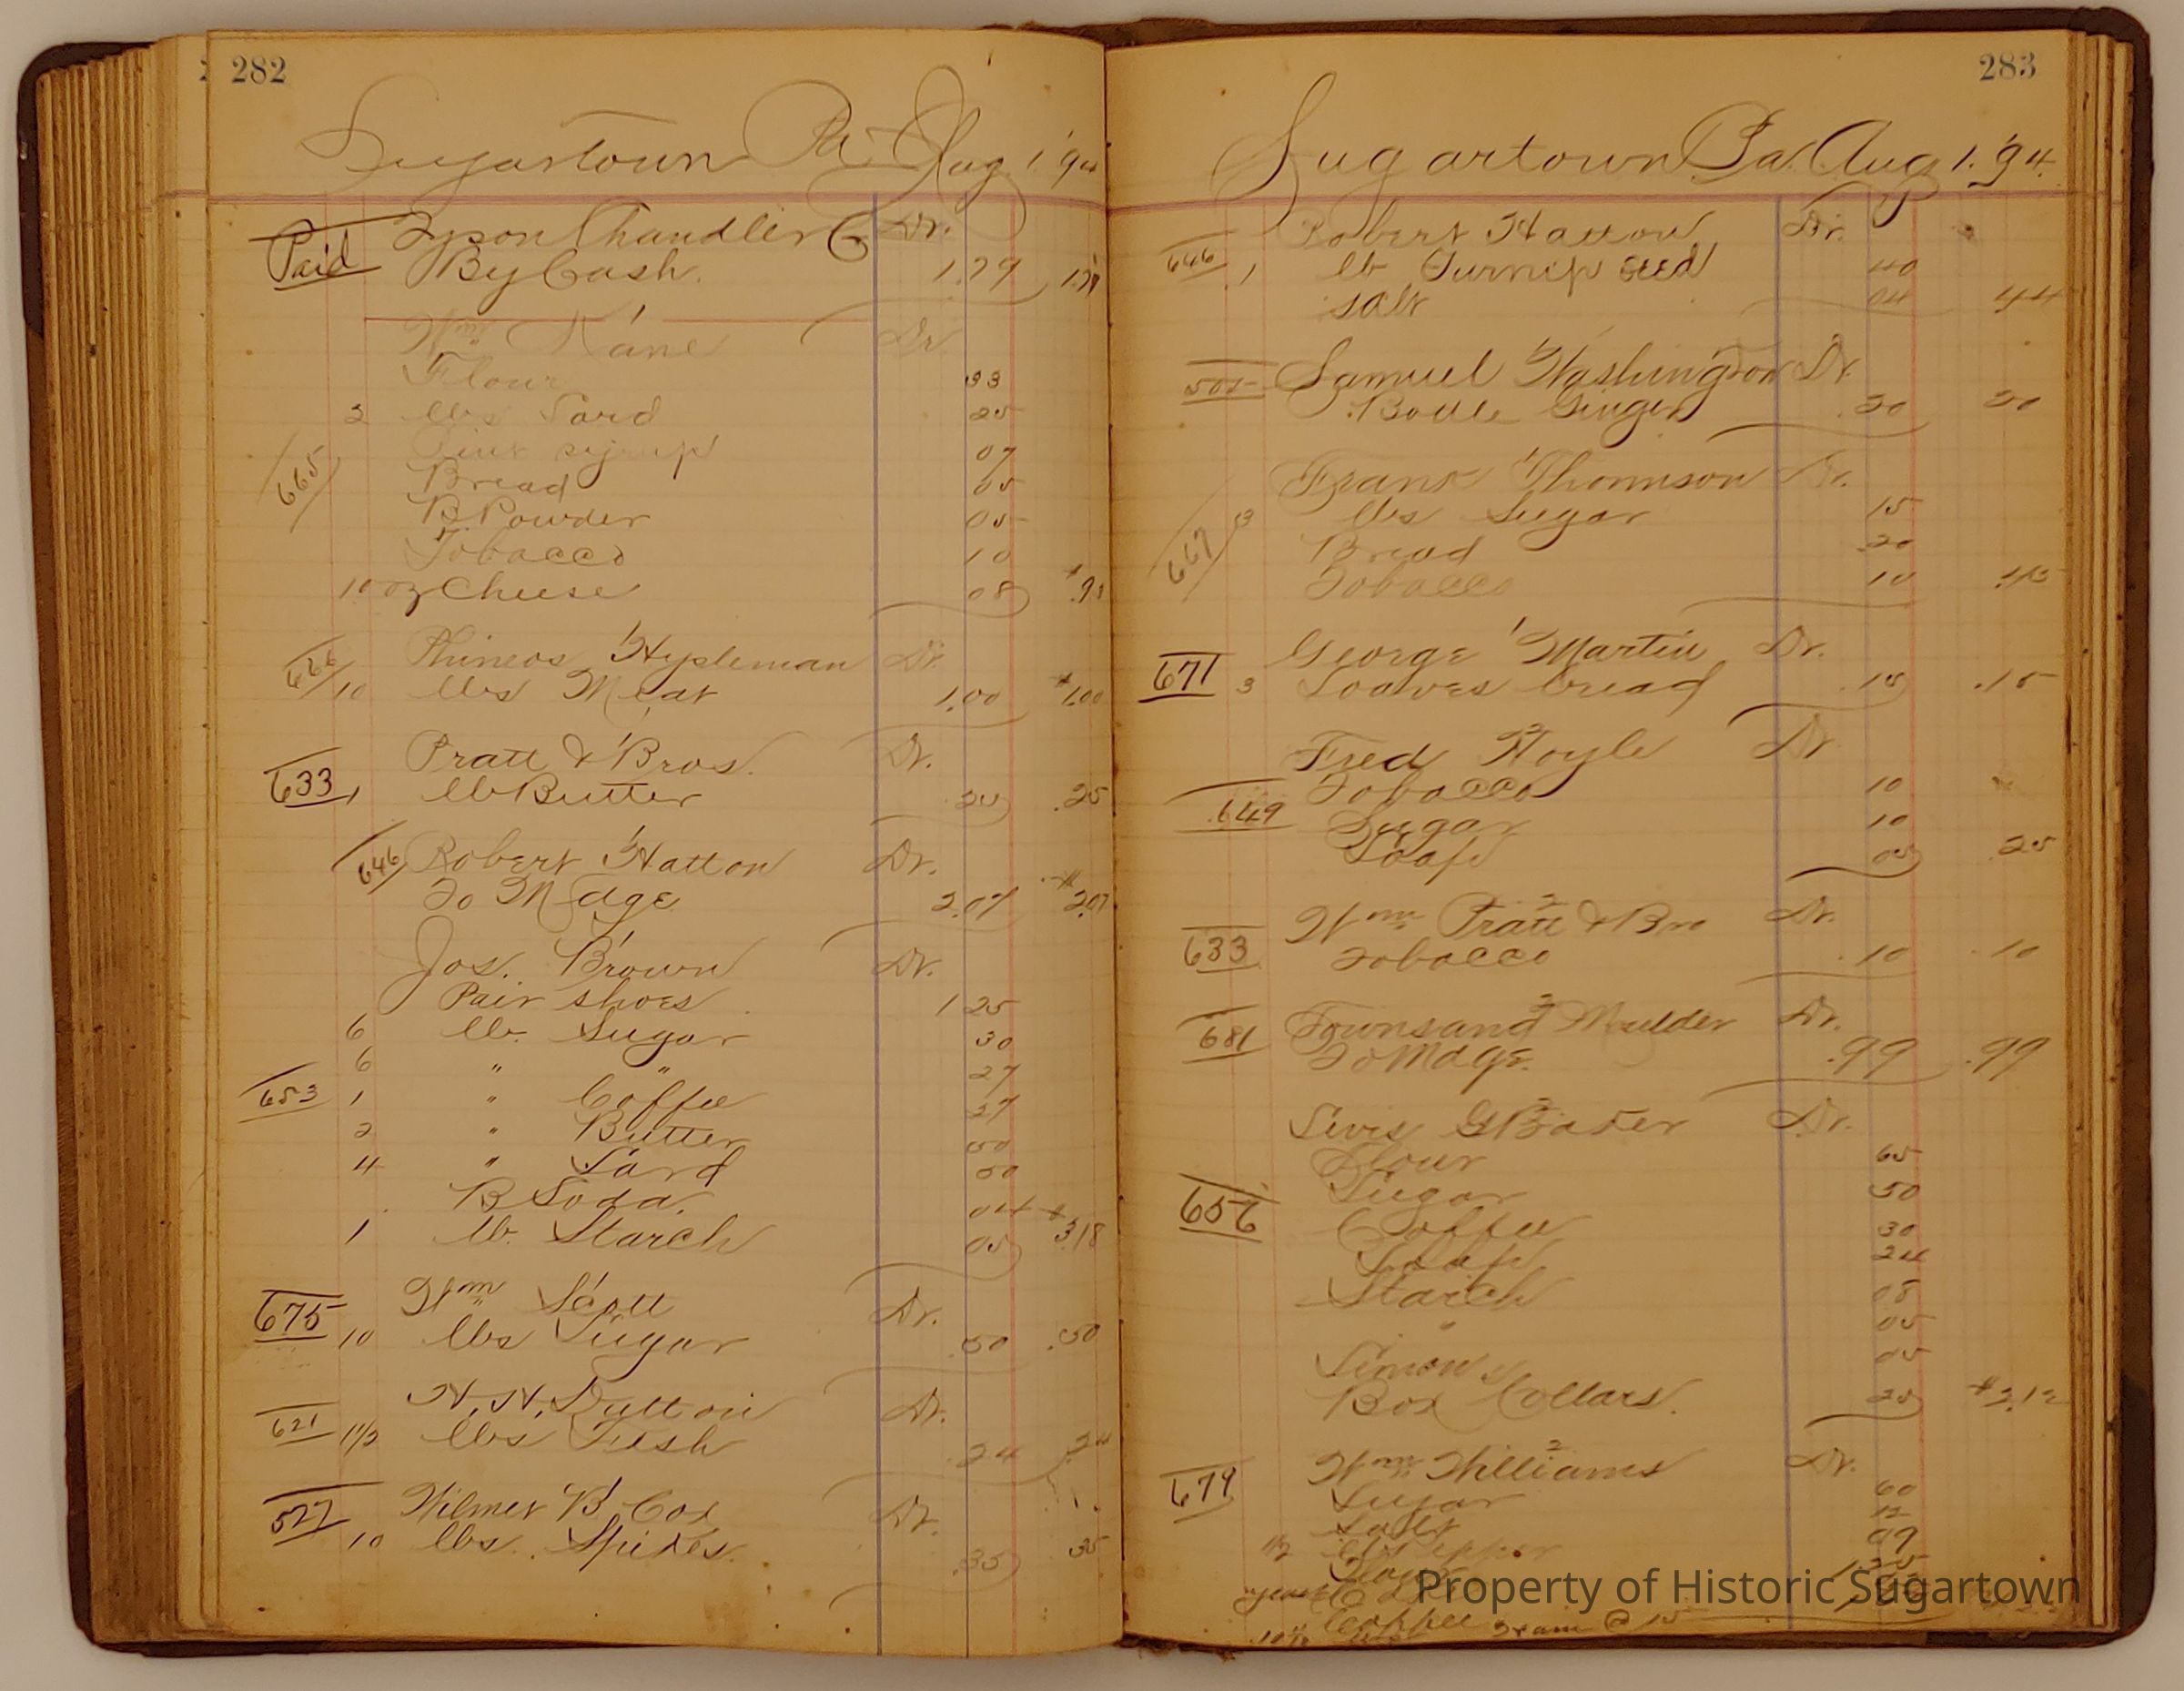 282
Sugartown Pa Aug 1 '94
Paid Tyson Chandler Cr Dr.
By Cash. 1.79 1.79
Wm Kane Dr
Flour 33
2 lbs Lard 25
665 Pint syrup 07
Bread 05
B. Powder 05
Tobacco 10
10 oz Cheese 08 .93
666 Phineas Hypleman Dr.
10 lbs Meat 1.00 1.00
Pratt & Bros. Dr.
633 1 lb Butter .25 .25
646 Robert Hatton Dr.
To Mdge 2.07 2.07
Jos. Brown Dr.
Pair shoes 1 25
6 lb. Sugar 30
6 " " 27
653 1 " Coffee 27
2 " Butter 50
4 " Lard 50
B Soda. 04
1 lb. Starch 05 3.18
675 Wm Scott Dr.
10 lbs Sugar .50 .50
H. H. Dutton Dr.
621 1 1/2 lbs Fish .24 .24
527 Wilmer B. Cox Dr.
10 lbs. Spikes. .35 35
283
Sugartown Pa. Aug 1. '94.
Robert Hatton Dr.
646 1 lb Turnip seed 40
salt 04 44
505 Samuel Washington Dr.
Bottle Ginger .20 20
Frank Thomson Dr.
667 3 lbs Sugar 15
Bread 20
Tobacco 10 .45
George Martin Dr.
671 3 Loaves bread .15 .15
Fred Hoyle Dr
Tobacco 10
649 Sugar 10
Soap 05 25
Wm Pratt & Bro Dr.
633 Tobacco .10 .10
681 Townsand Moulder Dr.
To Mdge. .99 .99
Levis G Baker Dr.
Flour 65
656 Sugar 50
Coffee 30
Soap 24
Starch 08
" 05
Simon's 05
Box Collars. 25 $2.12
Wm Williams Dr.
679 Sugar 60
Salt 12
1/2 lb Pepper 09
Flour
yeast
Coffee @ 15
Property of Historic Sugartown